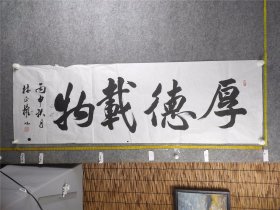 厚德載物
丙申秋月